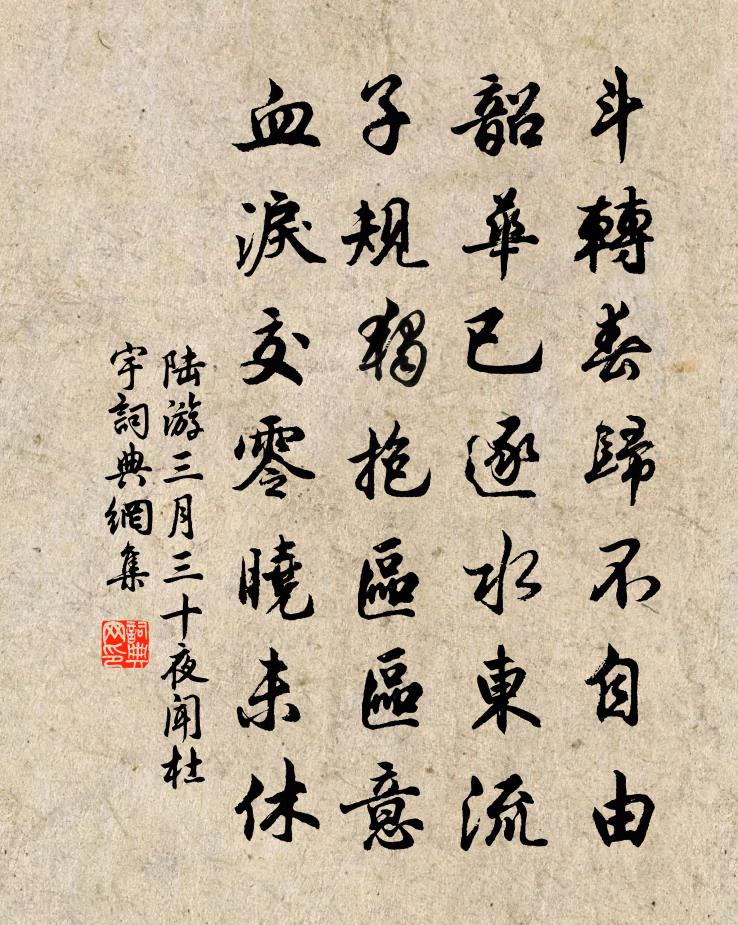 斗轉春歸不自由
韶華已逐水東流
子規獨抱區區意
血淚交零曉未休
陆游三月三十夜闻杜
宇詞典網集
詞典
网印